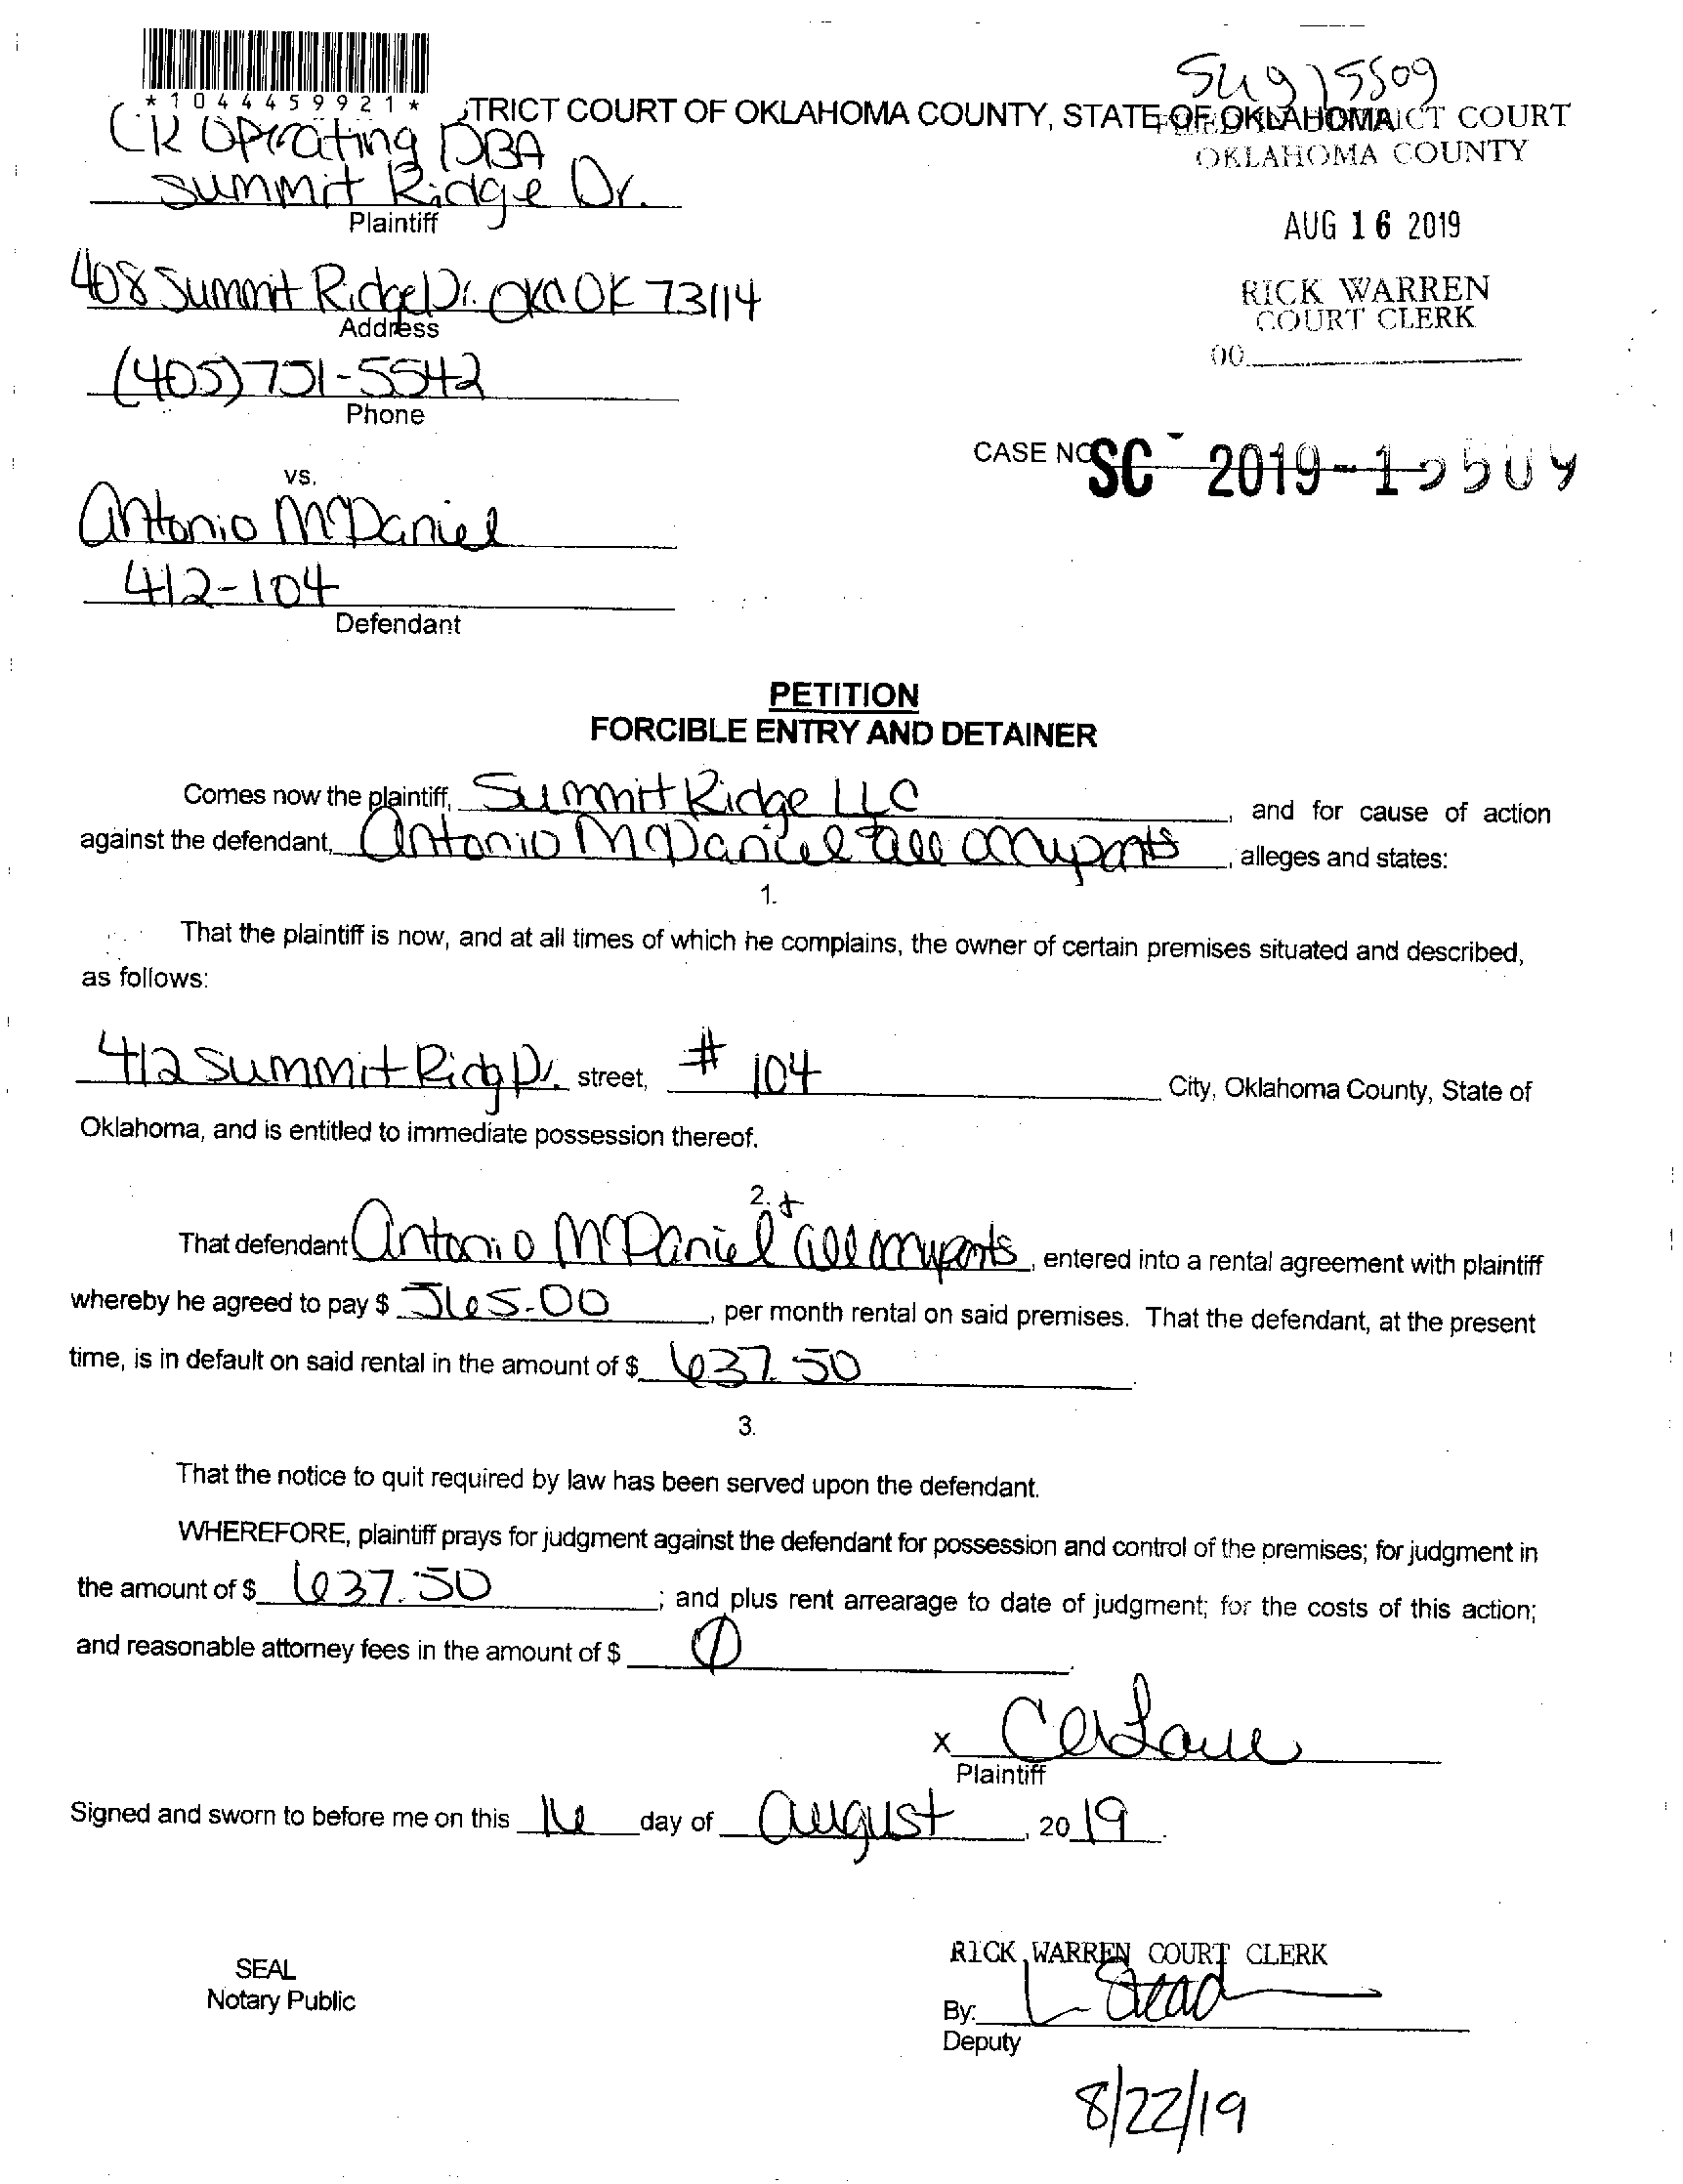 *1044459921*
STRICT COURT OF OKLAHOMA COUNTY, STATE OF OKLAHOMA
COURT
OKLAHOMA COUNTY
CR Operating DBA
Summit Ridge Dr.
Plaintiff
AUG 16 2019
408 Summit Ridge Dr. OKC OK 73114
Address
RICK WARREN
COURT CLERK
(405) 751-5542
Phone
CASE NO SC - 2019-15509
vs.
Antonio McDaniel
412-104
Defendant
PETITION
FORCIBLE ENTRY AND DETAINER
Comes now the plaintiff, Summit Ridge LLC and for cause of action
against the defendant, Antonio McDaniel & all occupants, alleges and states:
1.
That the plaintiff is now, and at all times of which he complains, the owner of certain premises situated and described,
as follows:
412 Summit Ridg Dr. street, # 104 City, Oklahoma County, State of
Oklahoma, and is entitled to immediate possession thereof.
2.
That defendant Antonio McDaniel + all occupants, entered into a rental agreement with plaintiff
whereby he agreed to pay $ 565.00, per month rental on said premises. That the defendant, at the present
time, is in default on said rental in the amount of $ 637.50
3.
That the notice to quit required by law has been served upon the defendant.
WHEREFORE, plaintiff prays for judgment against the defendant for possession and control of the premises; for judgment in
the amount of $ 637.50; and plus rent arrearage to date of judgment; for the costs of this action;
and reasonable attorney fees in the amount of $ 0
X
Plaintiff
Signed and sworn to before me on this 16 day of August, 2019
RICK WARREN COURT CLERK
SEAL
Notary Public
By:
Deputy
8/22/19